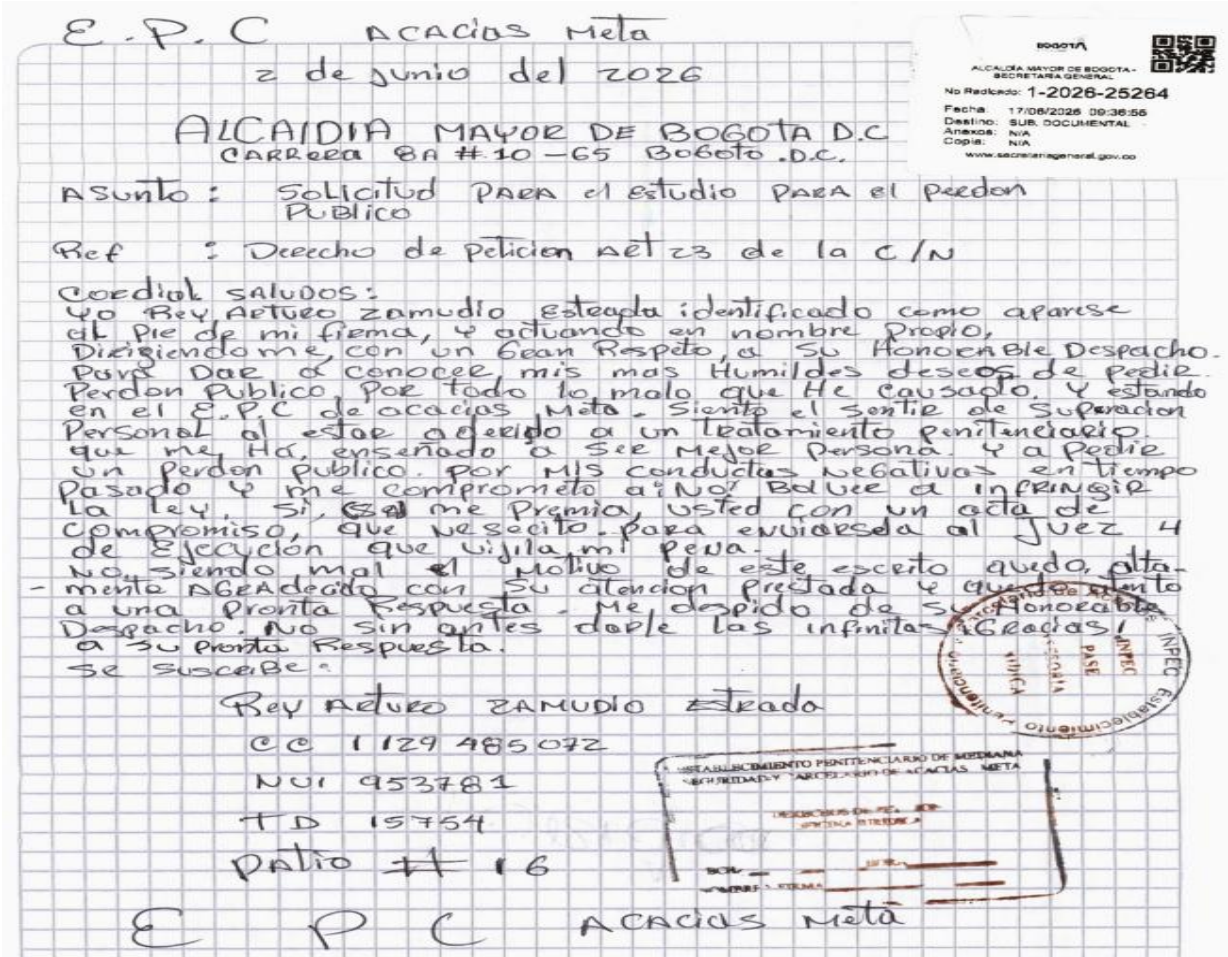 E.P.C Acacias Meta
2 de Junio del 2026
BOGOTÁ
ALCALDÍA MAYOR DE BOGOTA -
SECRETARÍA GENERAL
No Radicado: 1-2026-25264
Fecha: 17/06/2026 09:36:55
Destino: SUB. DOCUMENTAL
Anexos: N/A
Copia: N/A
www.secretariageneral.gov.co
ALCAIDIA MAYOR DE BOGOTA D.C
CARRERA 8A #.10-65 BOGOTO.D.C.
ASunto : Solicitud PARA el estudio PARA el Perdon
PUBlico
Ref : Derecho de Peticion Art 23 de la C/N
Cordial SALUDOS:
Yo Rey Arturo Zamudio Estrada identificado como aparese
al Pie de mi firma, y actuando en nombre Propio,
Dirigiendome, con un Gran Respeto, a Su HonorABle Despacho.
Para Dar a conocer, mis mas Humildes deseos de Pedir.
Perdon Publico, Por todo lo malo que He Causado. Y estando
en el E.P.C de acacias, Meta. Siento el sentir de Superacion
Personal al estar agerido a un tratamiento Penitenciario
que me, Ha, enseñado a Ser Mejor Persona. Y a Pedir
un Perdon publico. Por Mis conductas Negativas en tiempo
Pasado Y me comprometo a: No! Bolver a INFRINGIR
La Ley. Si, me Premia, Usted con un acta de
Compromiso, que Nesecito. Para enviarsela al Juez 4
de Ejecución que vijila, mi Pena.
No, siendo mal el Motivo de este escrito quedo, alta-
- mente AGRAdecido con Su atencion Prestada Y quedo atento
a una Pronta Respuesta. Me, despido de Su Honorable
Despacho. No Sin antes darle las infinitas ¡Gracias!
a Su Pronta Respuesta.
Se SuscriBe:
Rey Arturo ZAMUDIO Estrada
CC 1129 485072
NUI 953781
TD 15754
PAtio # 16
INPEC Establecimiento Penitenciario
INPEC
PASE
ESTABLECIMIENTO PENITENCIARIO DE MEDIANA
SEGURIDAD Y CARCELARIO DE ACACIAS META
E P C ACACIAS Meta